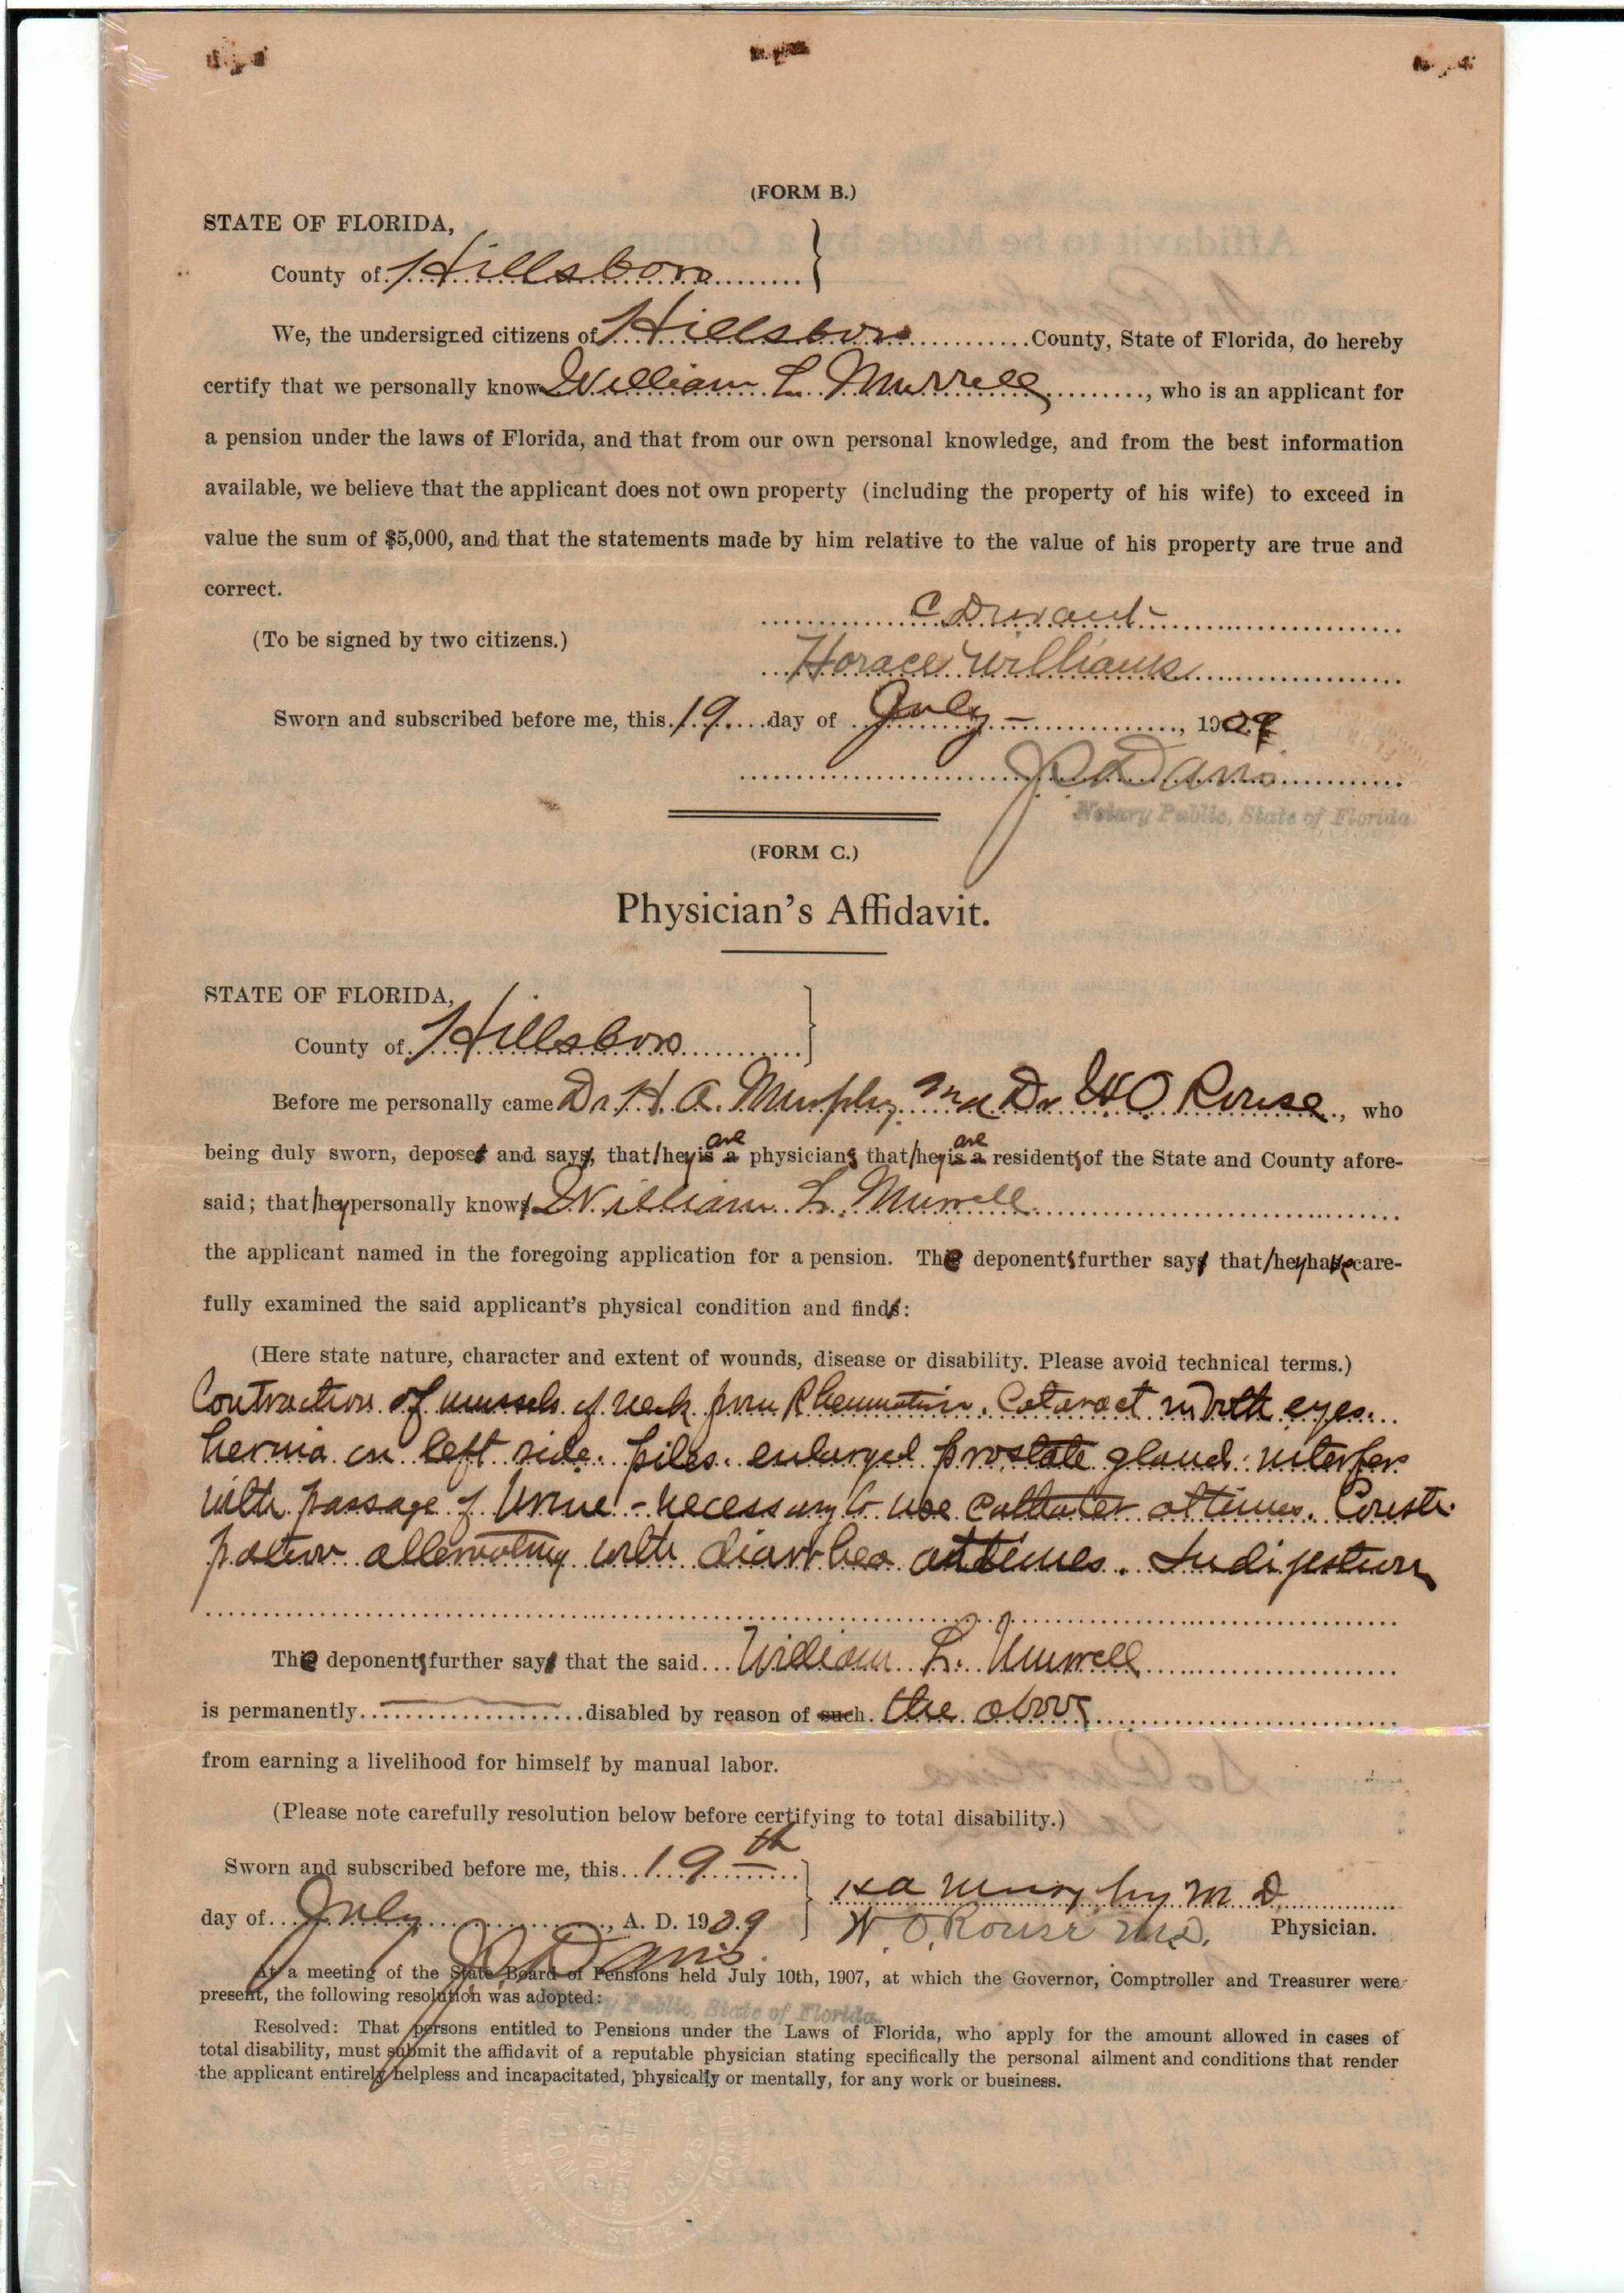 (FORM B.)
STATE OF FLORIDA,
County of Hillsboro
We, the undersigned citizens of Hillsboro County, State of Florida, do hereby
certify that we personally know William L. Murrell, who is an applicant for
a pension under the laws of Florida, and that from our own personal knowledge, and from the best information
available, we believe that the applicant does not own property (including the property of his wife) to exceed in
value the sum of $5,000, and that the statements made by him relative to the value of his property are true and
correct.
(To be signed by two citizens.)
Horace Williams
Sworn and subscribed before me, this 19 day of July, 1909
Davis
Notary Public, State of Florida
(FORM C.)
Physician's Affidavit.
STATE OF FLORIDA,
County of Hillsboro
Before me personally came Dr H. A. Murphy and Dr W O Rouse, who
being duly sworn, depose and say, that they are physicians that they are residents of the State and County afore-
said; that they personally know William L. Murrell
the applicant named in the foregoing application for a pension. The deponents further say that they have care-
fully examined the said applicant's physical condition and find:
(Here state nature, character and extent of wounds, disease or disability. Please avoid technical terms.)
Contraction of mussels of neck from Rheumatism. Cataract in both eyes.
hernia on left side. piles. enlarged prostate gland. interfers
with passage of Urine - necessary to use cathater at times. Consti
pation alternating with diarrhea at times. Indigestion
The deponents further say that the said William L. Murrell
is permanently disabled by reason of such the above
from earning a livelihood for himself by manual labor.
(Please note carefully resolution below before certifying to total disability.)
Sworn and subscribed before me, this 19th
H A Murphy M. D.
day of July, A. D. 1909
W. O. Rouse M.D. Physician.
Davis
At a meeting of the State Board of Pensions held July 10th, 1907, at which the Governor, Comptroller and Treasurer were
present, the following resolution was adopted:
Notary Public, State of Florida.
Resolved: That persons entitled to Pensions under the Laws of Florida, who apply for the amount allowed in cases of
total disability, must submit the affidavit of a reputable physician stating specifically the personal ailment and conditions that render
the applicant entirely helpless and incapacitated, physically or mentally, for any work or business.